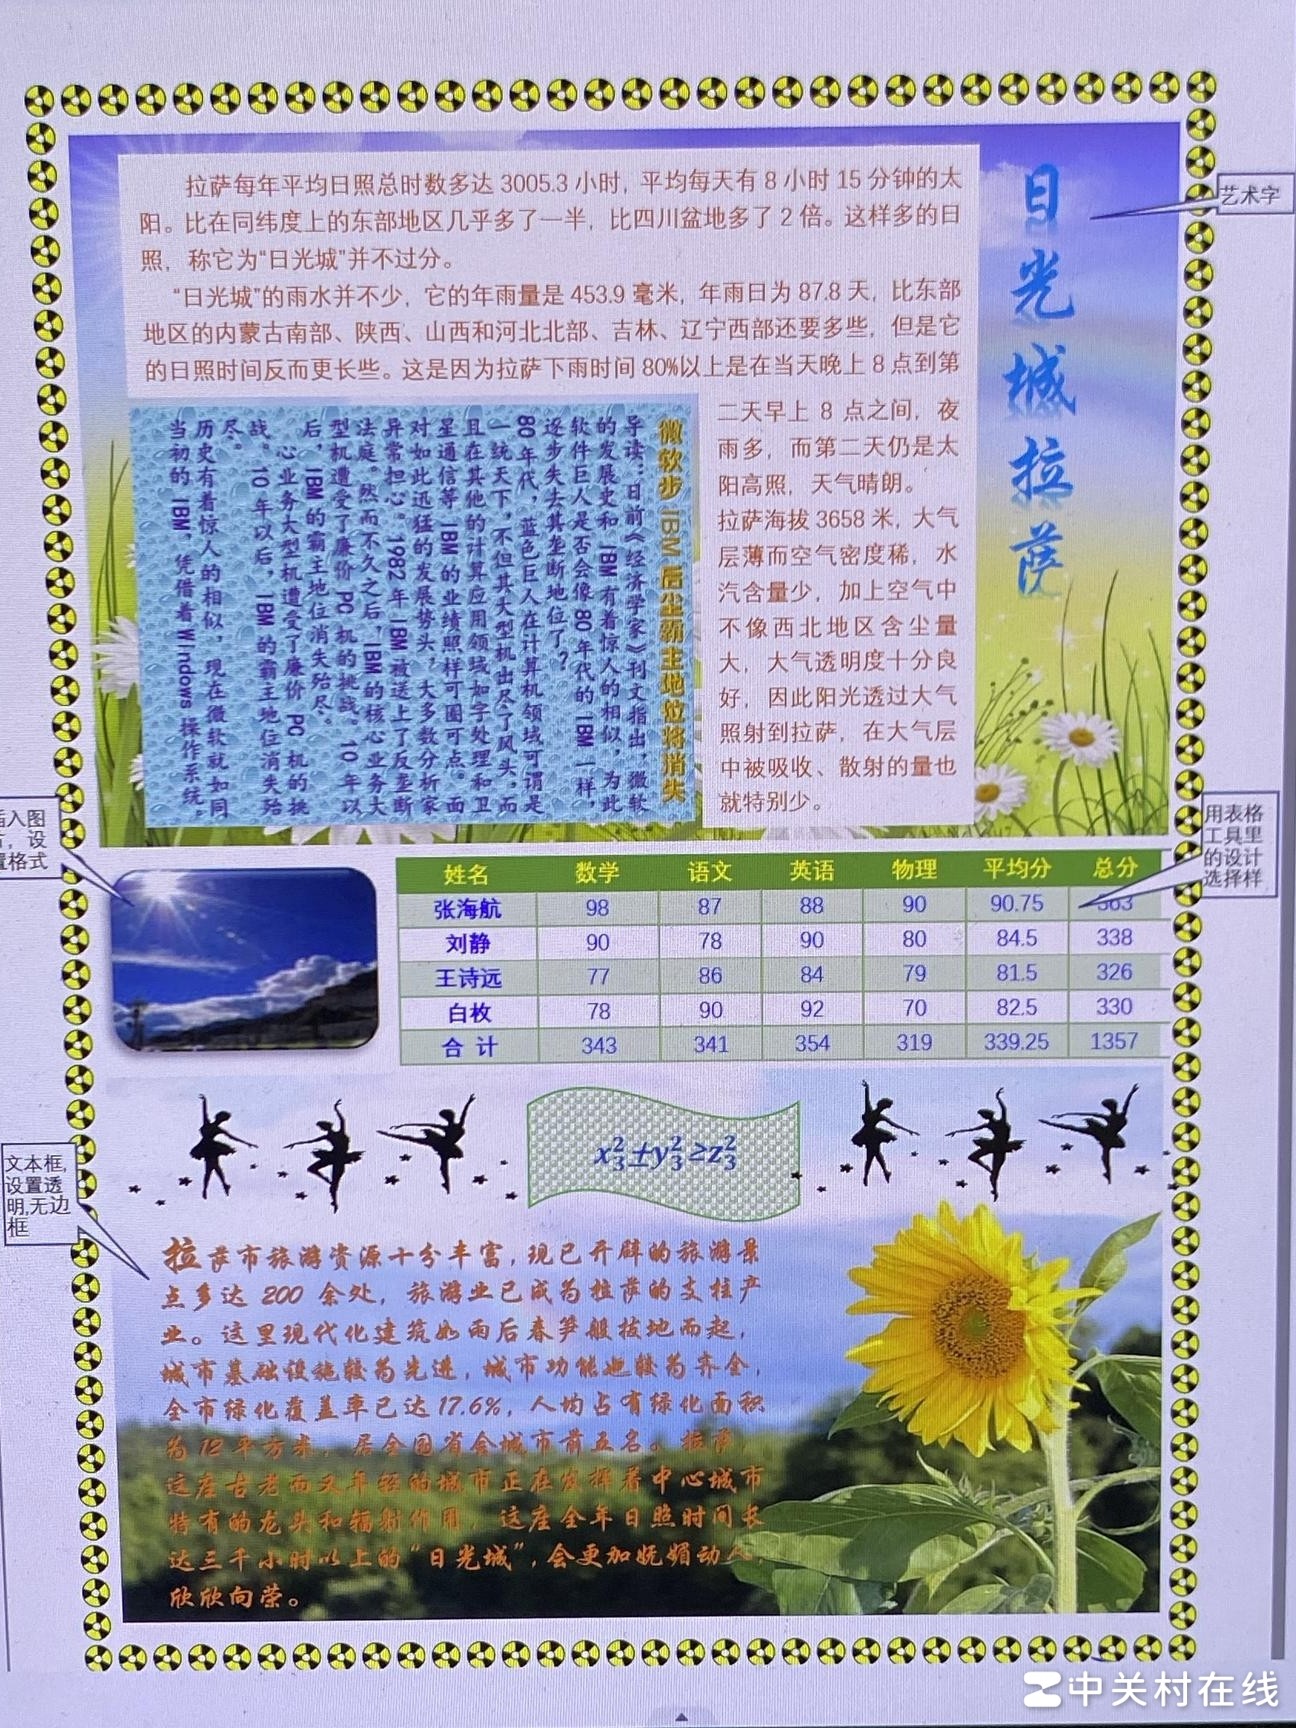 拉萨每年平均日照总时数多达 3005.3 小时，平均每天有 8 小时 15 分钟的太
阳。比在同纬度上的东部地区几乎多了一半，比四川盆地多了 2 倍。这样多的日
照，称它为“日光城”并不过分。
“日光城”的雨水并不少，它的年雨量是 453.9 毫米，年雨日为 87.8 天，比东部
地区的内蒙古南部、陕西、山西和河北北部、吉林、辽宁西部还要多些，但是它
的日照时间反而更长些。这是因为拉萨下雨时间 80%以上是在当天晚上 8 点到第
二天早上 8 点之间，夜
雨多，而第二天仍是太
阳高照，天气晴朗。
拉萨海拔 3658 米，大气
层薄而空气密度稀，水
汽含量少，加上空气中
不像西北地区含尘量
大，大气透明度十分良
好，因此阳光透过大气
照射到拉萨，在大气层
中被吸收、散射的量也
就特别少。
日光城拉萨
艺术字
微软步 IBM 后尘霸主地位将消失
导读：日前《经济学家》刊文指出，微软
的发展史和 IBM 有着惊人的相似，为此
软件巨人是否会像 80 年代的 IBM 一样，
逐步失去其垄断地位了？
80 年代，蓝色巨人在计算机领域可谓是
一统天下，不但其大型机出尽了风头，而
且在其他的计算应用领域如字处理和卫
星通信等 IBM 的业绩照样可圈可点。面
对如此迅猛的发展势头，大多数分析家
异常担心。1982 年 IBM 被送上了反垄断
法庭。然而不久之后，IBM 的核心业务大
型机遭受了廉价 PC 机的挑战。10 年以
后，IBM 的霸王地位消失殆尽。
心业务大型机遭受了廉价 PC 机的挑
战。10 年以后，IBM 的霸王地位消失殆
尽。
历史有着惊人的相似，现在微软就如同
当初的 IBM，凭借着 Windows 操作系统。
插入图
，设
置格式
用表格
工具里
的设计
选择样
姓名 数学 语文 英语 物理 平均分 总分
张海航 98 87 88 90 90.75 363
刘静 90 78 90 80 84.5 338
王诗远 77 86 84 79 81.5 326
白枚 78 90 92 70 82.5 330
合 计 343 341 354 319 339.25 1357
x²₃±y²₃≥z²₃
文本框,
设置透
明,无边
框
拉萨市旅游资源十分丰富，现已开辟的旅游景
点多达 200 余处，旅游业已成为拉萨的支柱产
业。这里现代化建筑如雨后春笋般拔地而起，
城市基础设施较为先进，城市功能也较为齐全，
全市绿化覆盖率已达 17.6%，人均占有绿化面积
为 12 平方米，居全国省会城市前五名。拉萨，
这座古老而又年轻的城市正在发挥着中心城市
特有的龙头和辐射作用，这座全年日照时间长
达三千小时以上的“日光城”，会更加妩媚动人，
欣欣向荣。
中关村在线